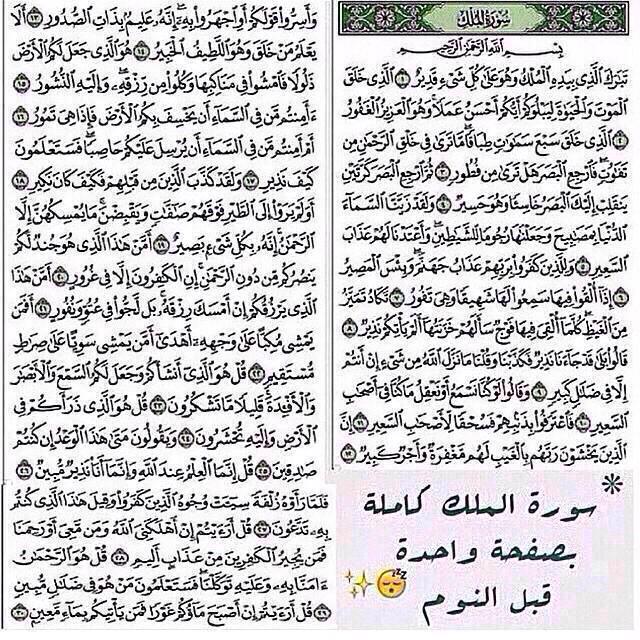 سُورَةُ المُلْكِ
بِسْمِ اللَّهِ الرَّحْمَٰنِ الرَّحِيمِ
تَبَٰرَكَ ٱلَّذِى بِيَدِهِ ٱلْمُلْكُ وَهُوَ عَلَىٰ كُلِّ شَىْءٍ قَدِيرٌ ١ ٱلَّذِى خَلَقَ
ٱلْمَوْتَ وَٱلْحَيَوٰةَ لِيَبْلُوَكُمْ أَيُّكُمْ أَحْسَنُ عَمَلًا وَهُوَ ٱلْعَزِيزُ ٱلْغَفُورُ
٢ ٱلَّذِى خَلَقَ سَبْعَ سَمَٰوَٰتٍ طِبَاقًا مَّا تَرَىٰ فِى خَلْقِ ٱلرَّحْمَٰنِ مِن
تَفَٰوُتٍ فَٱرْجِعِ ٱلْبَصَرَ هَلْ تَرَىٰ مِن فُطُورٍ ٣ ثُمَّ ٱرْجِعِ ٱلْبَصَرَ كَرَّتَيْنِ
يَنقَلِبْ إِلَيْكَ ٱلْبَصَرُ خَاسِئًا وَهُوَ حَسِيرٌ ٤ وَلَقَدْ زَيَّنَّا ٱلسَّمَآءَ
ٱلدُّنْيَا بِمَصَٰبِيحَ وَجَعَلْنَٰهَا رُجُومًا لِّلشَّيَٰطِينِ وَأَعْتَدْنَا لَهُمْ عَذَابَ
ٱلسَّعِيرِ ٥ وَلِلَّذِينَ كَفَرُوا۟ بِرَبِّهِمْ عَذَابُ جَهَنَّمَ وَبِئْسَ ٱلْمَصِيرُ
٦ إِذَآ أُلْقُوا۟ فِيهَا سَمِعُوا۟ لَهَا شَهِيقًا وَهِىَ تَفُورُ ٧ تَكَادُ تَمَيَّزُ
مِنَ ٱلْغَيْظِ كُلَّمَآ أُلْقِىَ فِيهَا فَوْجٌ سَأَلَهُمْ خَزَنَتُهَآ أَلَمْ يَأْتِكُمْ نَذِيرٌ ٨
قَالُوا۟ بَلَىٰ قَدْ جَآءَنَا نَذِيرٌ فَكَذَّبْنَا وَقُلْنَا مَا نَزَّلَ ٱللَّهُ مِن شَىْءٍ إِنْ أَنتُمْ
إِلَّا فِى ضَلَٰلٍ كَبِيرٍ ٩ وَقَالُوا۟ لَوْ كُنَّا نَسْمَعُ أَوْ نَعْقِلُ مَا كُنَّا فِىٓ أَصْحَٰبِ
ٱلسَّعِيرِ ١٠ فَٱعْتَرَفُوا۟ بِذَنۢبِهِمْ فَسُحْقًا لِّأَصْحَٰبِ ٱلسَّعِيرِ ١١ إِنَّ
ٱلَّذِينَ يَخْشَوْنَ رَبَّهُم بِٱلْغَيْبِ لَهُم مَّغْفِرَةٌ وَأَجْرٌ كَبِيرٌ ١٢
وَأَسِرُّوا۟ قَوْلَكُمْ أَوِ ٱجْهَرُوا۟ بِهِۦٓ إِنَّهُۥ عَلِيمٌۢ بِذَاتِ ٱلصُّدُورِ ١٣ أَلَا
يَعْلَمُ مَنْ خَلَقَ وَهُوَ ٱللَّطِيفُ ٱلْخَبِيرُ ١٤ هُوَ ٱلَّذِى جَعَلَ لَكُمُ ٱلْأَرْضَ
ذَلُولًا فَٱمْشُوا۟ فِى مَنَاكِبِهَا وَكُلُوا۟ مِن رِّزْقِهِۦ وَإِلَيْهِ ٱلنُّشُورُ ١٥
ءَأَمِنتُم مَّن فِى ٱلسَّمَآءِ أَن يَخْسِفَ بِكُمُ ٱلْأَرْضَ فَإِذَا هِىَ تَمُورُ ١٦
أَمْ أَمِنتُم مَّن فِى ٱلسَّمَآءِ أَن يُرْسِلَ عَلَيْكُمْ حَاصِبًا فَسَتَعْلَمُونَ
كَيْفَ نَذِيرِ ١٧ وَلَقَدْ كَذَّبَ ٱلَّذِينَ مِن قَبْلِهِمْ فَكَيْفَ كَانَ نَكِيرِ ١٨
أَوَلَمْ يَرَوْا۟ إِلَى ٱلطَّيْرِ فَوْقَهُمْ صَٰٓفَّٰتٍ وَيَقْبِضْنَ مَا يُمْسِكُهُنَّ إِلَّا
ٱلرَّحْمَٰنُ إِنَّهُۥ بِكُلِّ شَىْءٍۭ بَصِيرٌ ١٩ أَمَّنْ هَٰذَا ٱلَّذِى هُوَ جُندٌ لَّكُمْ
يَنصُرُكُم مِّن دُونِ ٱلرَّحْمَٰنِ إِنِ ٱلْكَٰفِرُونَ إِلَّا فِى غُرُورٍ ٢٠ أَمَّنْ هَٰذَا
ٱلَّذِى يَرْزُقُكُمْ إِنْ أَمْسَكَ رِزْقَهُۥ بَل لَّجُّوا۟ فِى عُتُوٍّ وَنُفُورٍ ٢١ أَفَمَن
يَمْشِى مُكِبًّا عَلَىٰ وَجْهِهِۦٓ أَهْدَىٰٓ أَمَّن يَمْشِى سَوِيًّا عَلَىٰ صِرَٰطٍ
مُّسْتَقِيمٍ ٢٢ قُلْ هُوَ ٱلَّذِىٓ أَنشَأَكُمْ وَجَعَلَ لَكُمُ ٱلسَّمْعَ وَٱلْأَبْصَٰرَ
وَٱلْأَفْـِٔدَةَ قَلِيلًا مَّا تَشْكُرُونَ ٢٣ قُلْ هُوَ ٱلَّذِى ذَرَأَكُمْ فِى
ٱلْأَرْضِ وَإِلَيْهِ تُحْشَرُونَ ٢٤ وَيَقُولُونَ مَتَىٰ هَٰذَا ٱلْوَعْدُ إِن كُنتُمْ
صَٰدِقِينَ ٢٥ قُلْ إِنَّمَا ٱلْعِلْمُ عِندَ ٱللَّهِ وَإِنَّمَآ أَنَا۠ نَذِيرٌ مُّبِينٌ ٢٦
فَلَمَّا رَأَوْهُ زُلْفَةً سِيٓـَٔتْ وُجُوهُ ٱلَّذِينَ كَفَرُوا۟ وَقِيلَ هَٰذَا ٱلَّذِى كُنتُم
بِهِۦ تَدَّعُونَ ٢٧ قُلْ أَرَءَيْتُمْ إِنْ أَهْلَكَنِىَ ٱللَّهُ وَمَن مَّعِىَ أَوْ رَحِمَنَا
فَمَن يُجِيرُ ٱلْكَٰفِرِينَ مِنْ عَذَابٍ أَلِيمٍ ٢٨ قُلْ هُوَ ٱلرَّحْمَٰنُ
ءَامَنَّا بِهِۦ وَعَلَيْهِ تَوَكَّلْنَا فَسَتَعْلَمُونَ مَنْ هُوَ فِى ضَلَٰلٍ مُّبِينٍ
٢٩ قُلْ أَرَءَيْتُمْ إِنْ أَصْبَحَ مَآؤُكُمْ غَوْرًا فَمَن يَأْتِيكُم بِمَآءٍ مَّعِينٍۭ ٣٠
* سورة الملك كاملة
بصفحة واحدة
قبل النوم